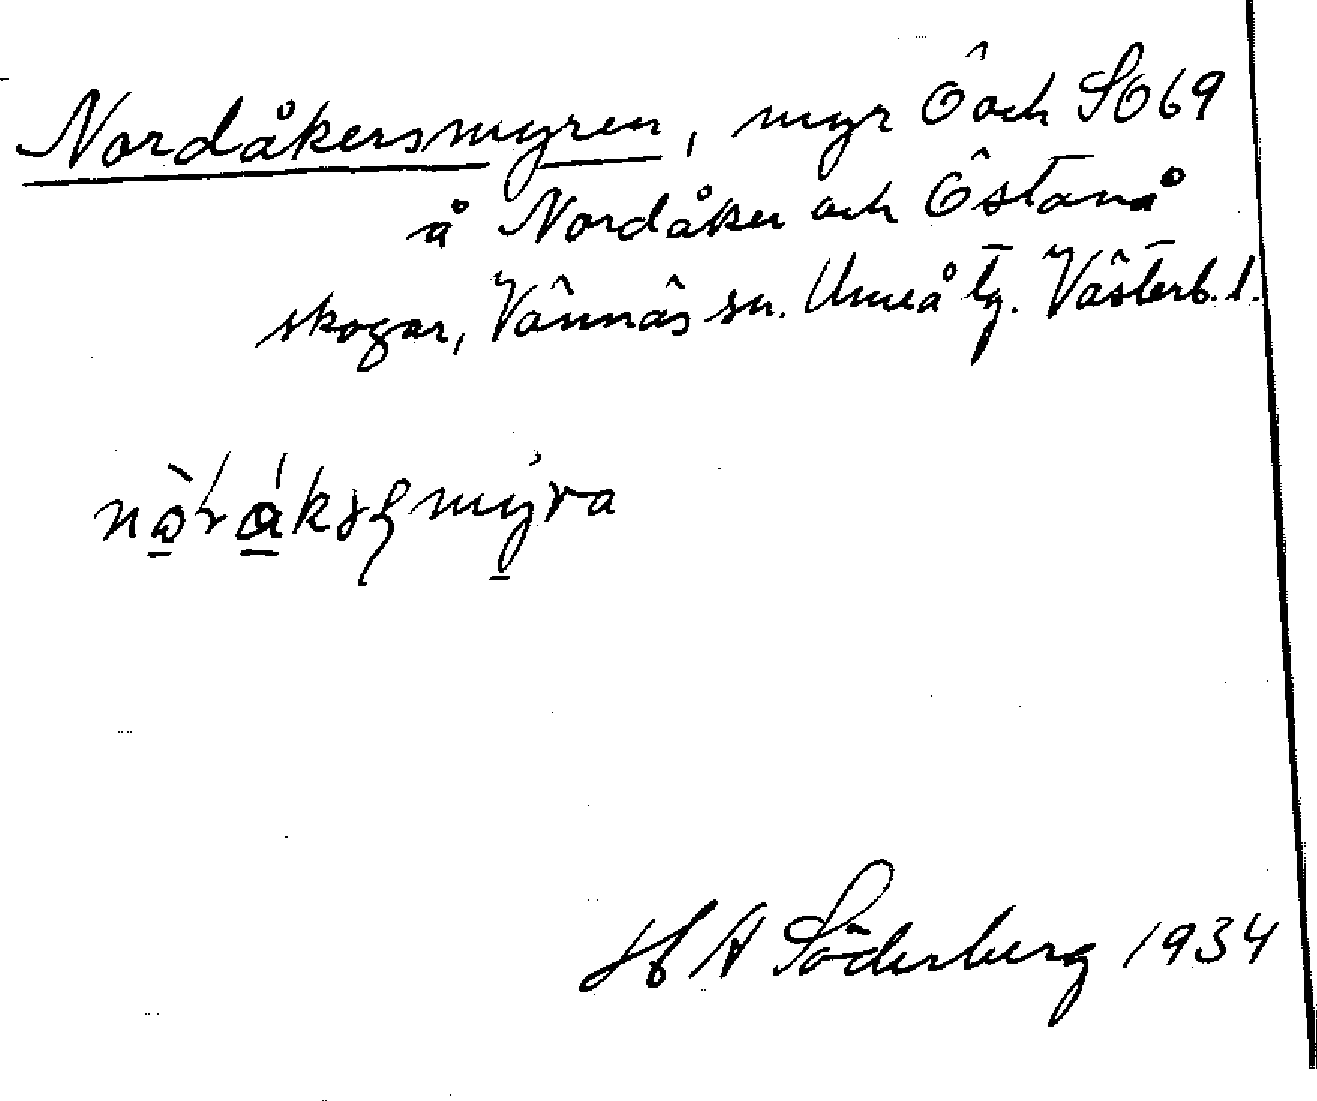 Nordåkersmyren, myr Ö och SO 69
å Nordåker och Östanå
skogar, Vännäs sn. Umeå tg. Västerb. l.
H A Söderberg 1934